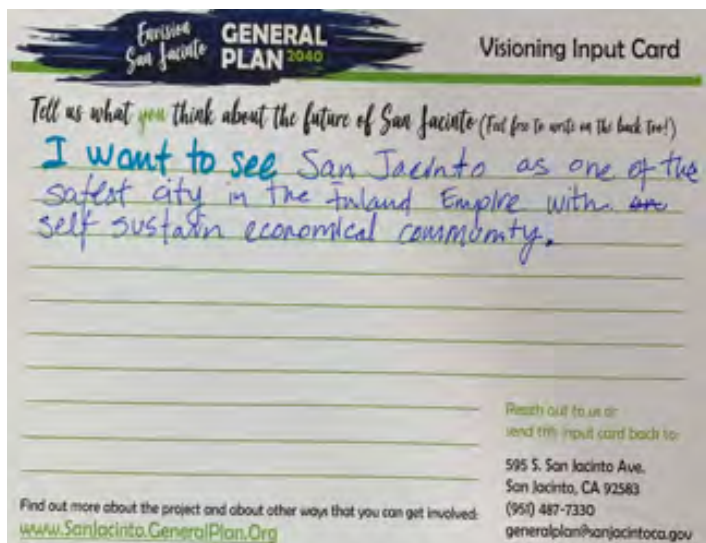 Envision
San Jacinto
GENERAL
PLAN 2040
Visioning Input Card
Tell us what you think about the future of San Jacinto (Feel free to write on the back too!)
I want to see San Jacinto as one of the
safest city in the Inland Empire with
self sustain economical community.
Reach out to us or
send this input card back to:
595 S. San Jacinto Ave.
San Jacinto, CA 92583
(951) 487-7330
generalplan@sanjacintoca.gov
Find out more about the project and about other ways that you can get involved:
www.SanJacinto.GeneralPlan.Org